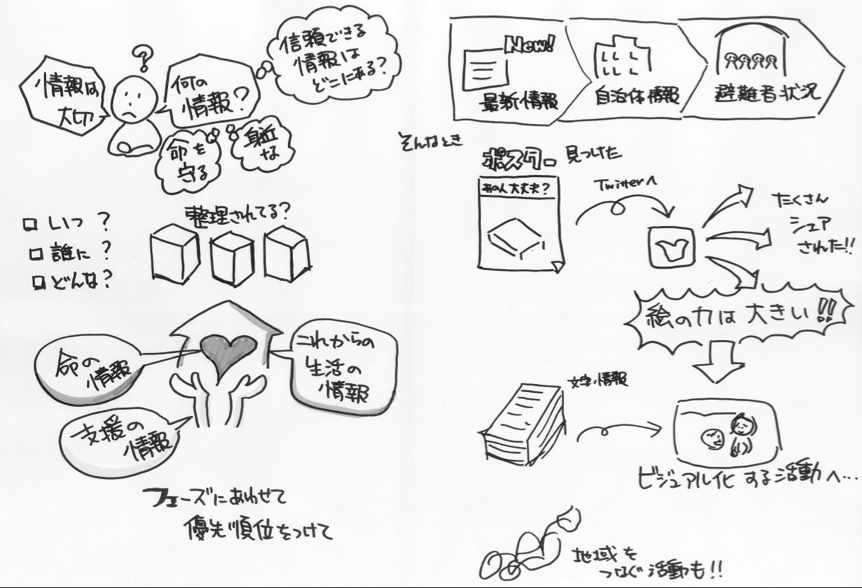 情報は
大切
?
何の
情報?
信頼できる
情報は
どこにある?
命を
守る
身近
な
いつ ?
誰に ?
どんな?
整理されてる?
命の
情報
これからの
生活の
情報
支援の
情報
フェーズにあわせて
優先順位をつけて
New!
最新情報
自治体情報
避難者状況
そんなとき
ポスター 見つけた
あの人大丈夫?
Twitterへ
たくさん
シェア
された!!
絵の力は大きい!!
文字情報
ビジュアル化する活動へ…
地域を
つなぐ活動も!!